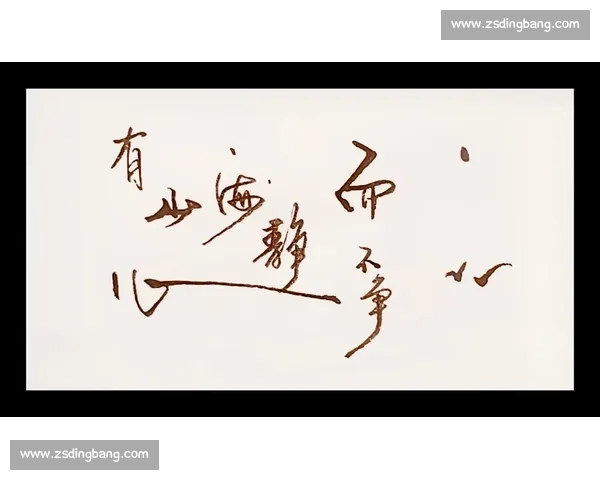 www.zsdingbang.com
心有山海静而不争
www.zsdingbang.com